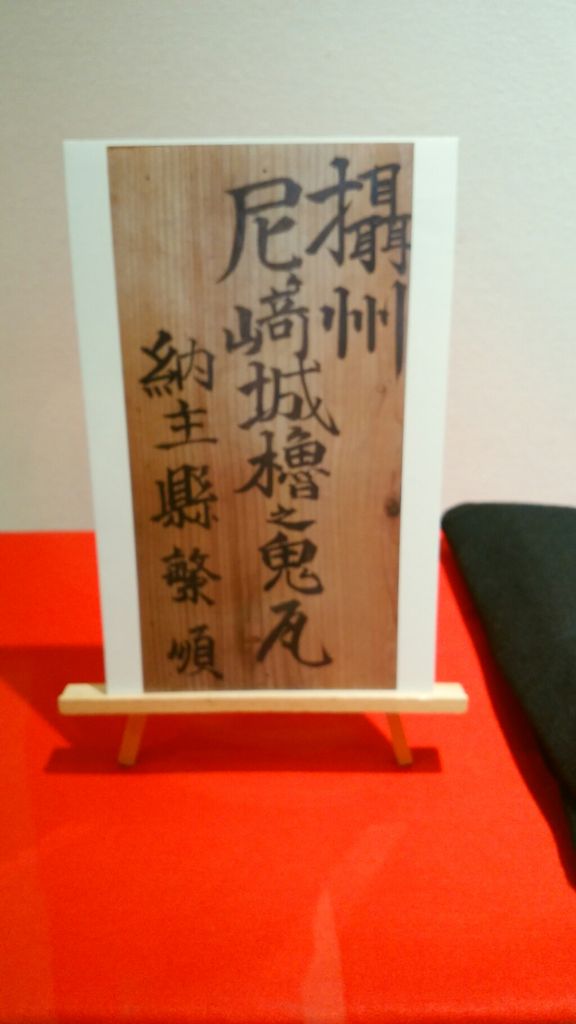 攝州
尼﨑城櫓之鬼瓦
納主縣繁順